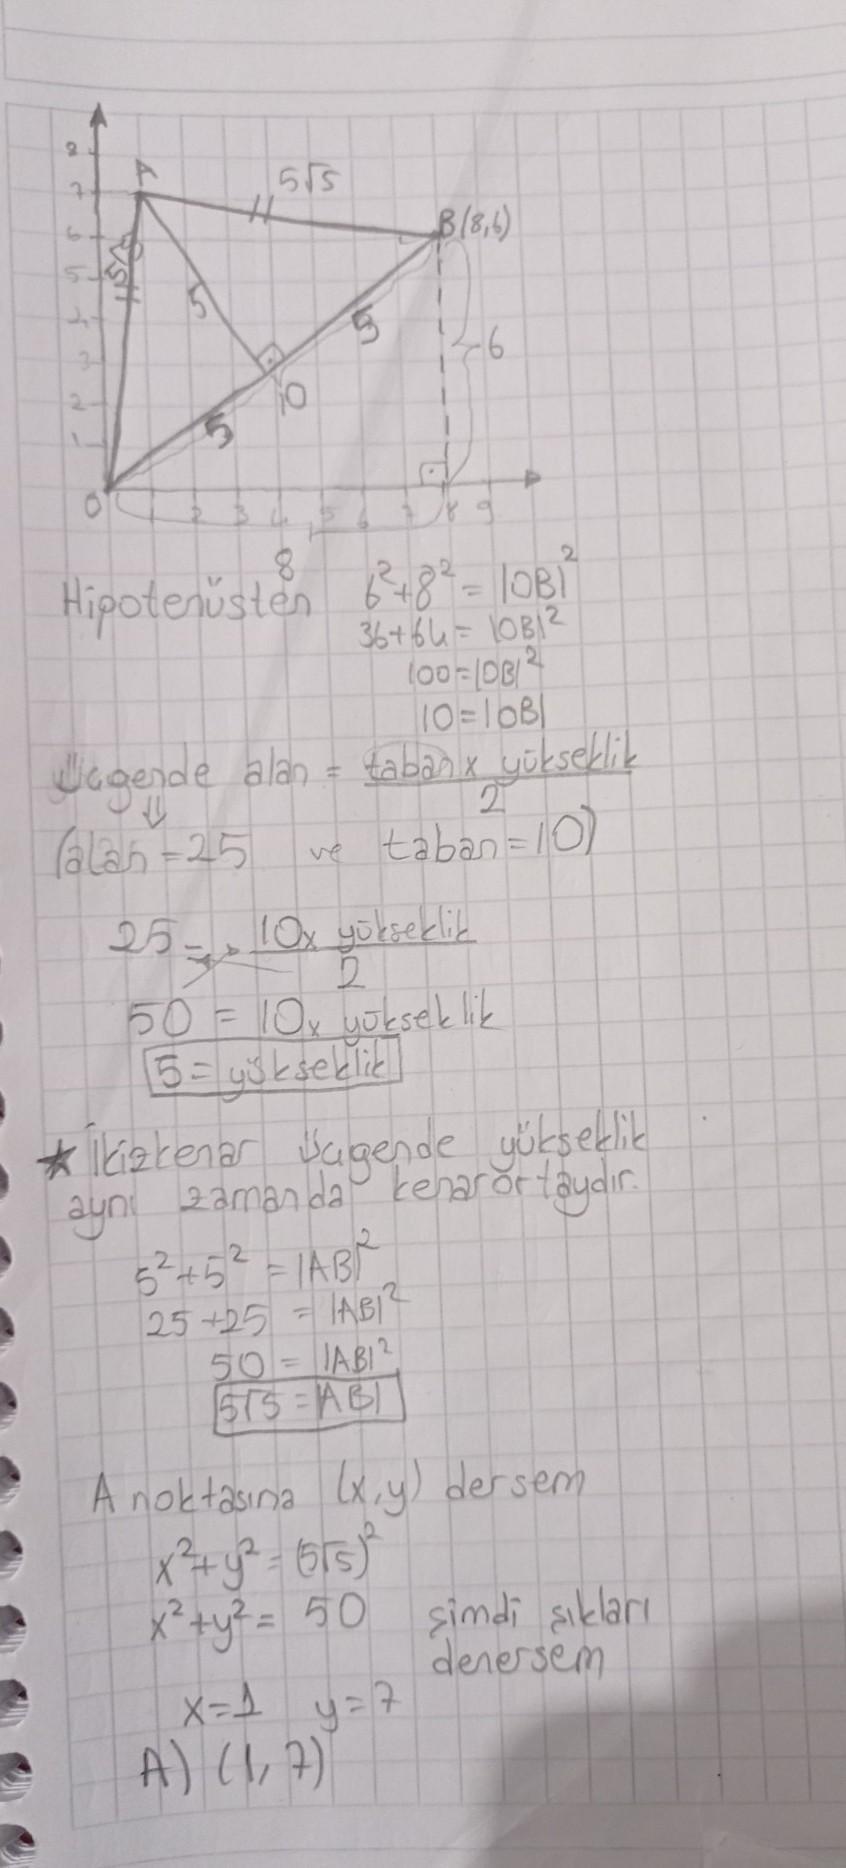 8
A
5√5
7
B(8,6)
6
5√5
5
5
5
4
6
3
10
2
5
1
0
1 2 3 4 5 6 7 8 9
8
Hipotenüsten 6²+8² = |OB|²
36+64 = |OB|²
100=|OB|²
10=|OB|
Üçgende alan = taban x yükseklik
2
(alan = 25 ve taban = 10)
25 = 10x yükseklik
2
50 = 10x yükseklik
5 = yükseklik
★ İkizkenar üçgende yükseklik
aynı zamanda kenarortaydır.
5²+5² = |AB|²
25+25 = |AB|²
50 = |AB|²
5√5 = |AB|
A noktasına (x,y) dersem
x²+y² = (5√5)²
x²+y² = 50 şimdi şıkları
denersem
x=1 y=7
A) (1,7)